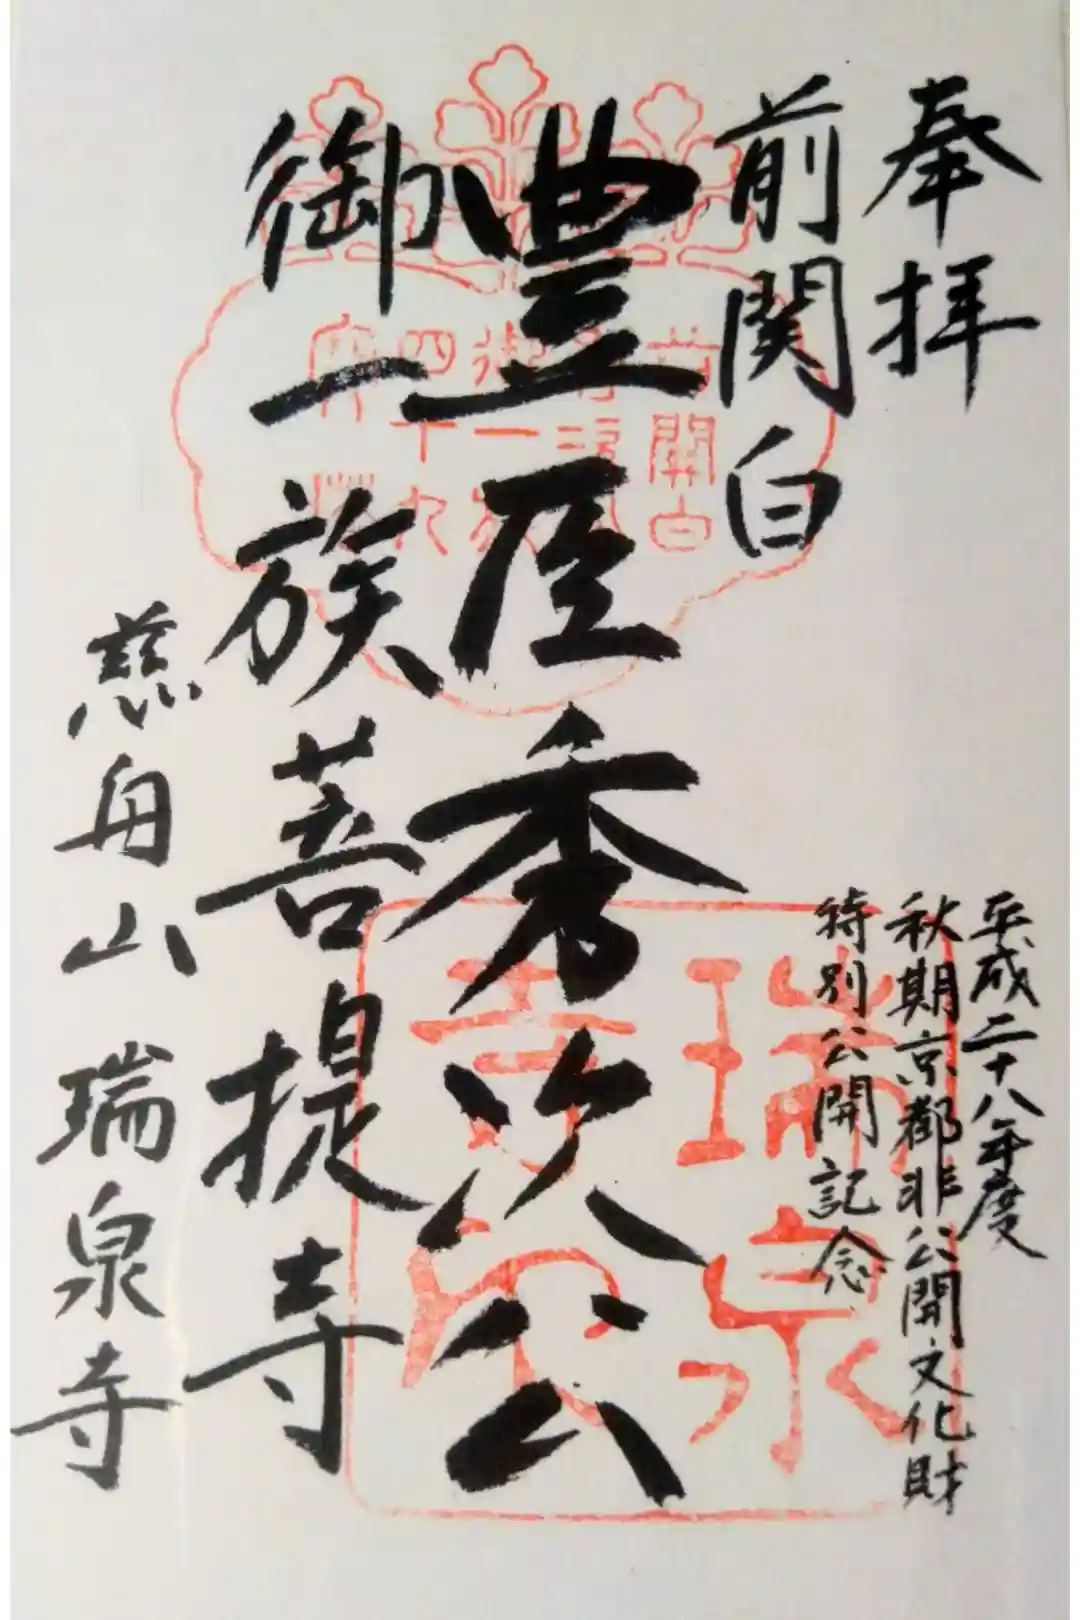 奉拝
前関白
豊臣秀次公
御一族菩提寺
慈舟山 瑞泉寺
平成二十八年度
秋期京都非公開文化財
特別公開記念
前關白
御一族
四十九
瑞泉
寺印